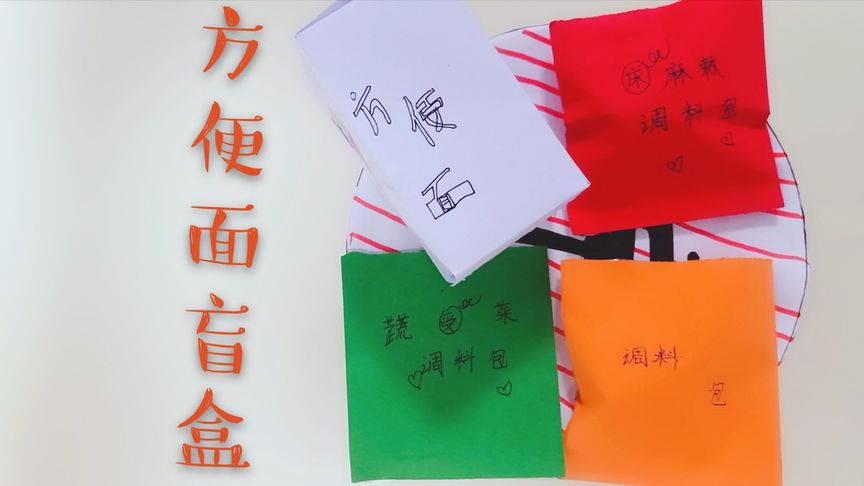 方便面盲盒
方便面
床麻
调料包
蔬受菜
调料包
调料
包